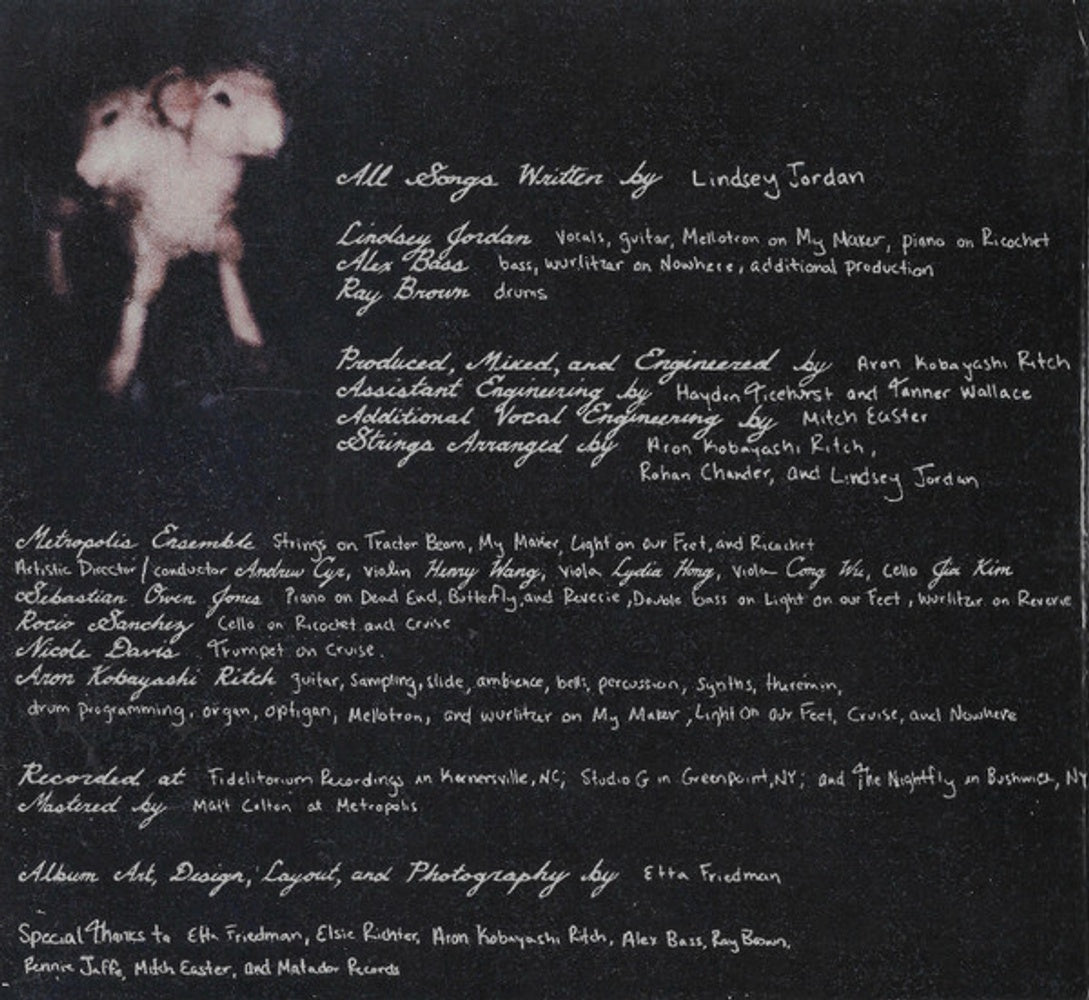 All Songs Written by Lindsey Jordan
Lindsey Jordan Vocals, guitar, Mellotron on My Maker, piano on Ricochet
Alex Bass bass, wurlitzer on Nowhere, additional production
Ray Brown drums
Produced, Mixed, and Engineered by Aron Kobayashi Ritch
Assistant Engineering by Hayden Ticehurst and Tanner Wallace
Additional Vocal Engineering by Mitch Easter
Strings Arranged by Aron Kobayashi Ritch,
Rohan Chander, and Lindsey Jordan
Metropolis Ensemble Strings on Tractor Beam, My Maker, Light on our Feet, and Ricochet
Artistic Director/conductor Andrew Cyr, violin Henry Wang, viola Lydia Hong, viola Cong Wu, cello Jia Kim
Sebastian Owen Jones Piano on Dead End, Butterfly, and Reverie, Double bass on Light on our Feet, wurlitzer on Reverie
Rocio Sanchez Cello on Ricochet and Cruise
Nicole Davis Trumpet on Cruise.
Aron Kobayashi Ritch guitar, sampling, slide, ambience, bells, percussion, synths, theremin,
drum programming, organ, optigan, Mellotron, and wurlitzer on My Maker, Light On Our Feet, Cruise, and Nowhere
Recorded at Fidelitorium Recordings in Kernersville, NC; Studio G in Greenpoint, NY; and The Nightfly in Bushwick, NY
Mastered by Matt Colton at Metropolis
Album Art, Design, Layout, and Photography by Etta Friedman
Special Thanks to Etta Friedman, Elsie Richter, Aron Kobayashi Ritch, Alex Bass, Ray Brown,
Rennie Jaffe, Mitch Easter, and Matador Records